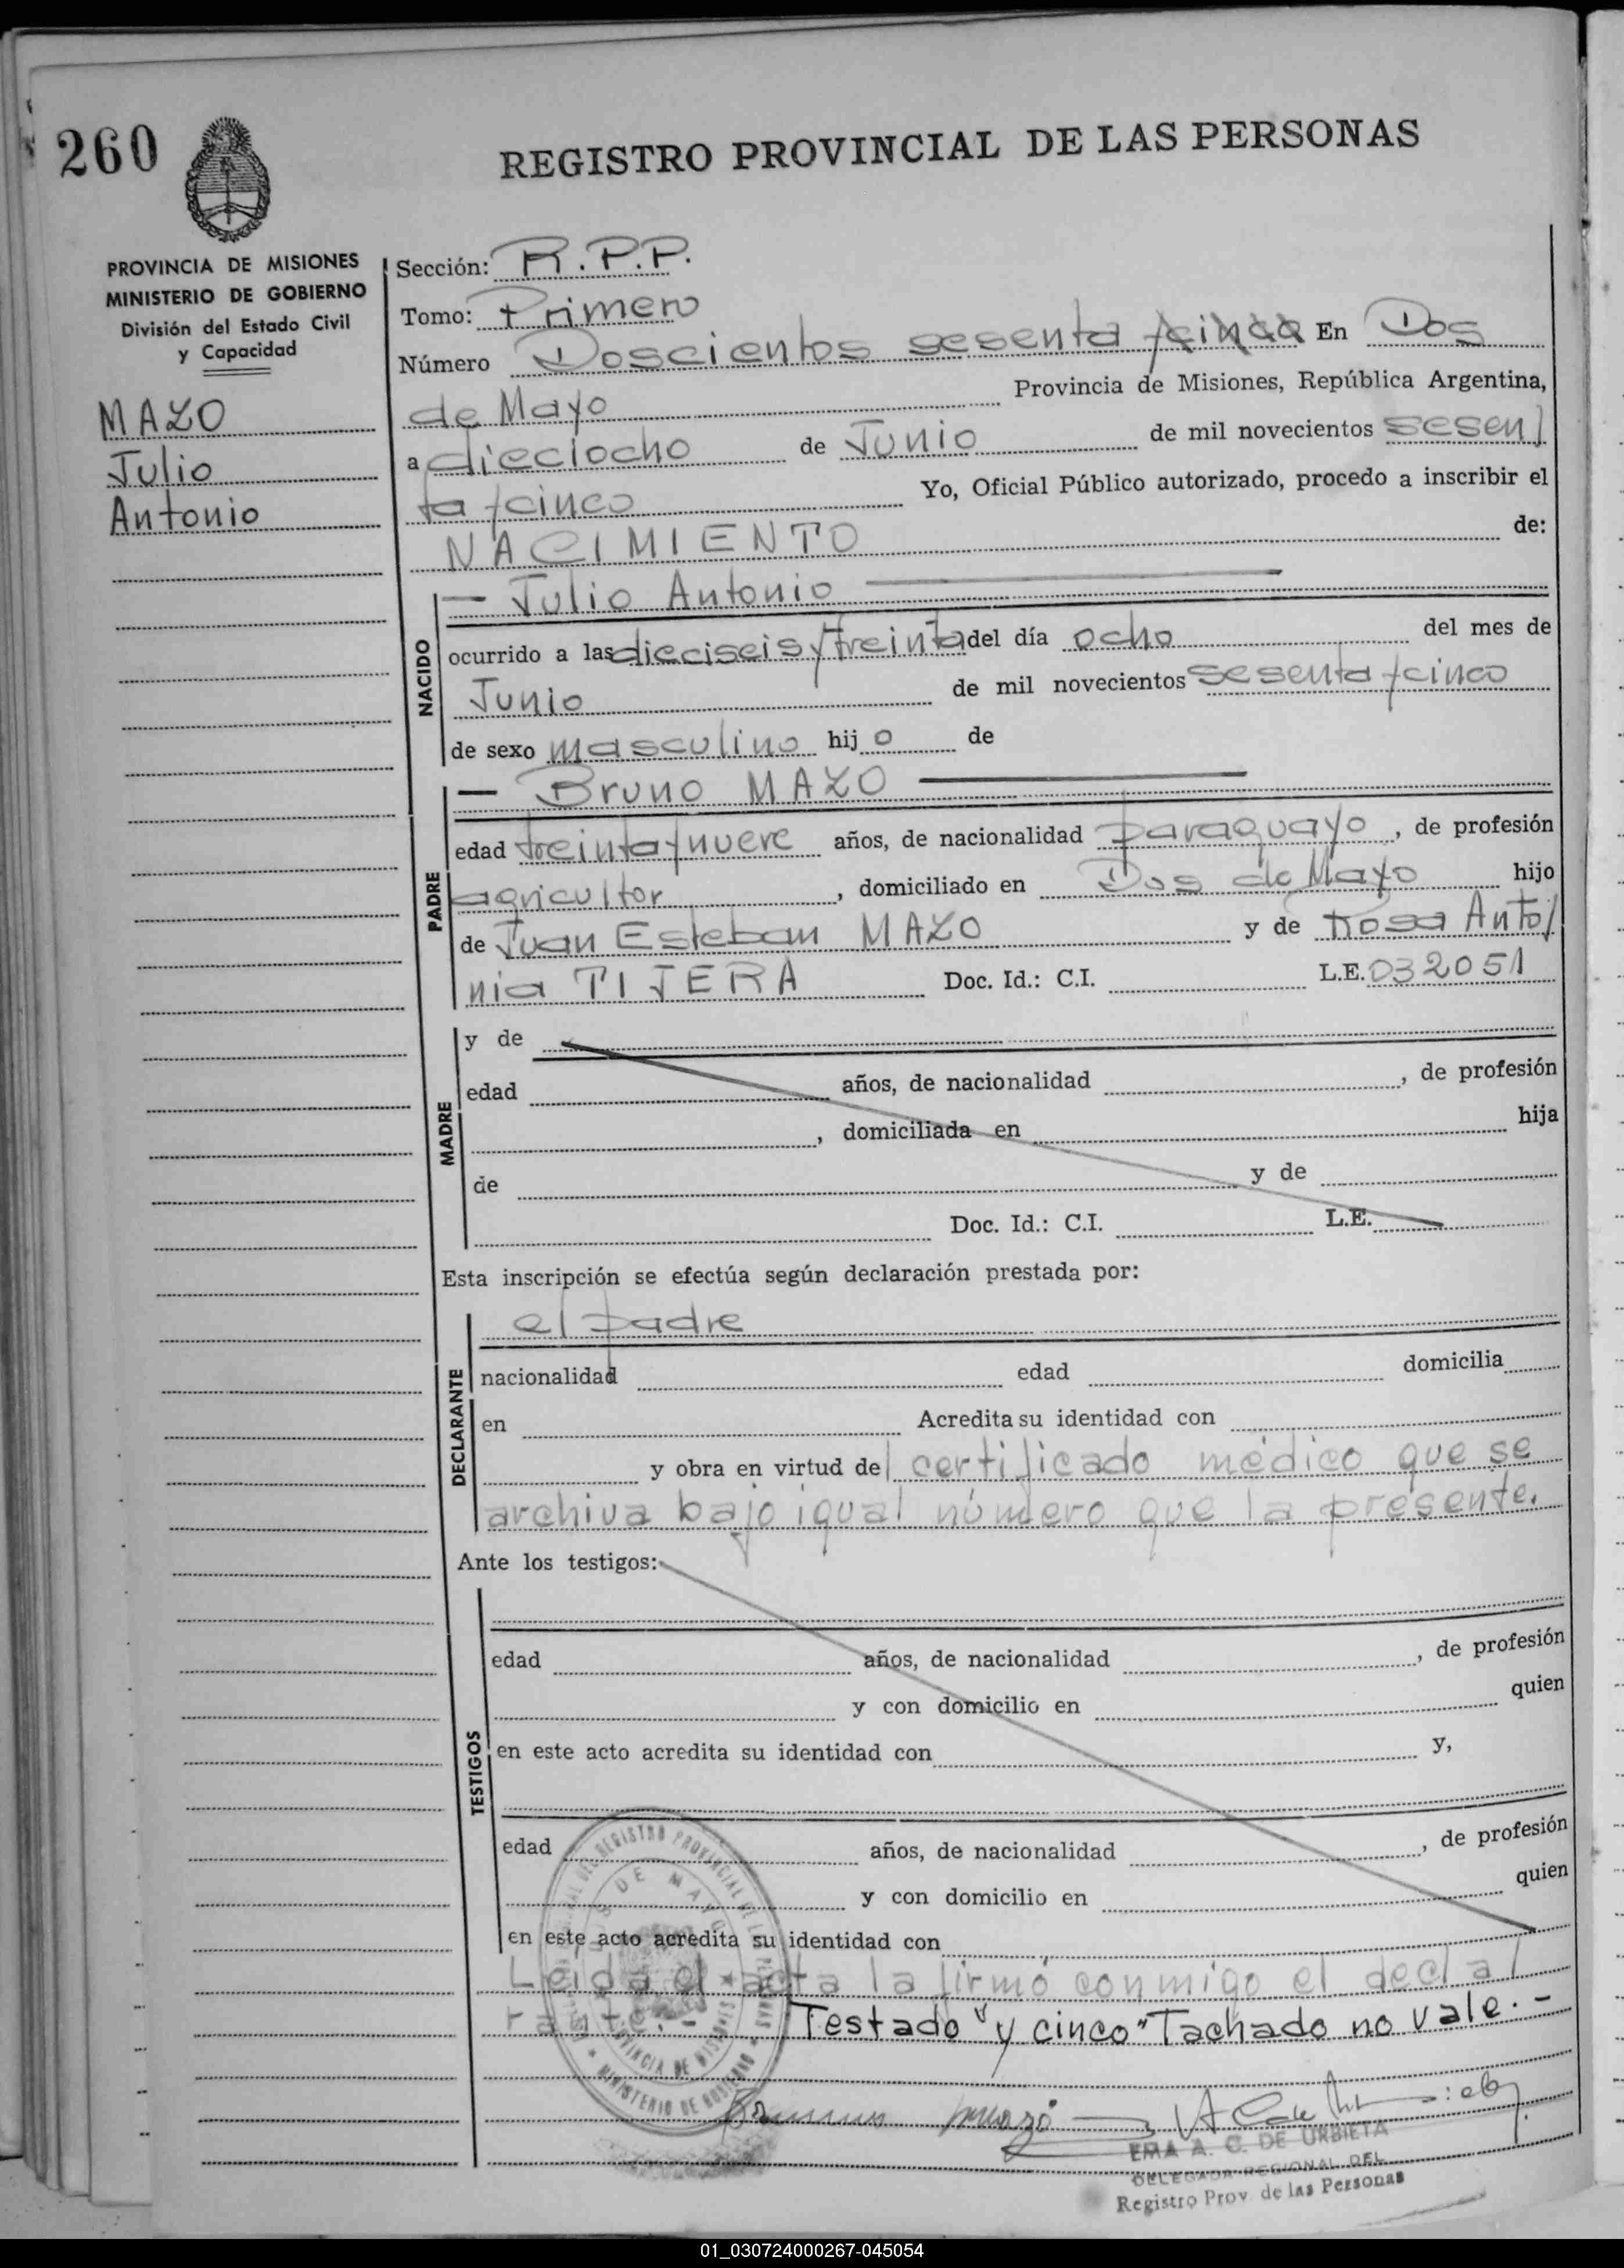 260
REGISTRO PROVINCIAL DE LAS PERSONAS
PROVINCIA DE MISIONES
MINISTERIO DE GOBIERNO
División del Estado Civil
y Capacidad
MAZO
Julio
Antonio
Sección: R.P.P.
Tomo: Primero
Número Doscientos sesenta y cinco En Dos
de Mayo Provincia de Misiones, República Argentina,
a dieciocho de Junio de mil novecientos sesen/
ta y cinco Yo, Oficial Público autorizado, procedo a inscribir el
NACIMIENTO de:
NACIDO
— Julio Antonio —
ocurrido a las dieciseis y treinta del día ocho del mes de
Junio de mil novecientos sesenta y cinco
de sexo masculino hijo de
PADRE
— Bruno MAZO —
edad treinta y nueve años, de nacionalidad paraguayo, de profesión
agricultor, domiciliado en Dos de Mayo hijo
de Juan Esteban MAZO y de Rosa Anto/
nia TIJERA Doc. Id.: C.I. L.E. 032051
MADRE
y de
edad años, de nacionalidad , de profesión
, domiciliada en hija
de y de
Doc. Id.: C.I. L.E.
Esta inscripción se efectúa según declaración prestada por:
DECLARANTE
el padre
nacionalidad edad domicilia
en Acredita su identidad con
y obra en virtud del certificado médico que se
archiva bajo igual número que la presente.
Ante los testigos:
TESTIGOS
edad años, de nacionalidad , de profesión
y con domicilio en quien
en este acto acredita su identidad con y,
edad años, de nacionalidad , de profesión
y con domicilio en quien
en este acto acredita su identidad con
Leída el acta la firmó conmigo el decla/
rante.- Testado "y cinco" Tachado no vale.-
DEL REGISTRO PROVINCIAL DE LAS PERSONAS
DOS DE MAYO
PROVINCIA DE MISIONES
MINISTERIO DE GOBIERNO
Bruno Mazo
EMA A. C. DE URBIETA
DELEGADA REGIONAL DEL
Registro Prov. de las Personas
01_030724000267-045054